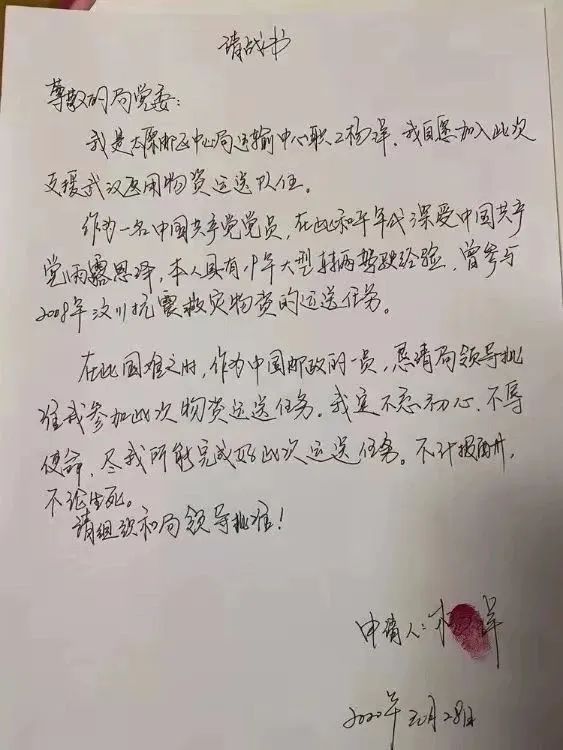 请战书
尊敬的局党委：
我是太原邮区中心局运输中心职工杨洋，我自愿加入此次
支援武汉医用物资运送队伍。
作为一名中国共产党党员，在此和平年代深受中国共产
党雨露恩泽，本人具有十年大型车辆驾驶经验，曾参与
2008年汶川抗震救灾物资的运送任务。
在此困难之时，作为中国邮政的一员，恳请局领导批
准我参加此次物资运送任务。我定不忘初心、不辱
使命，尽我所能完成好此次运送任务。不计报酬，
不论生死。
请组织和局领导批准！
申请人：杨洋
2020年元月28日